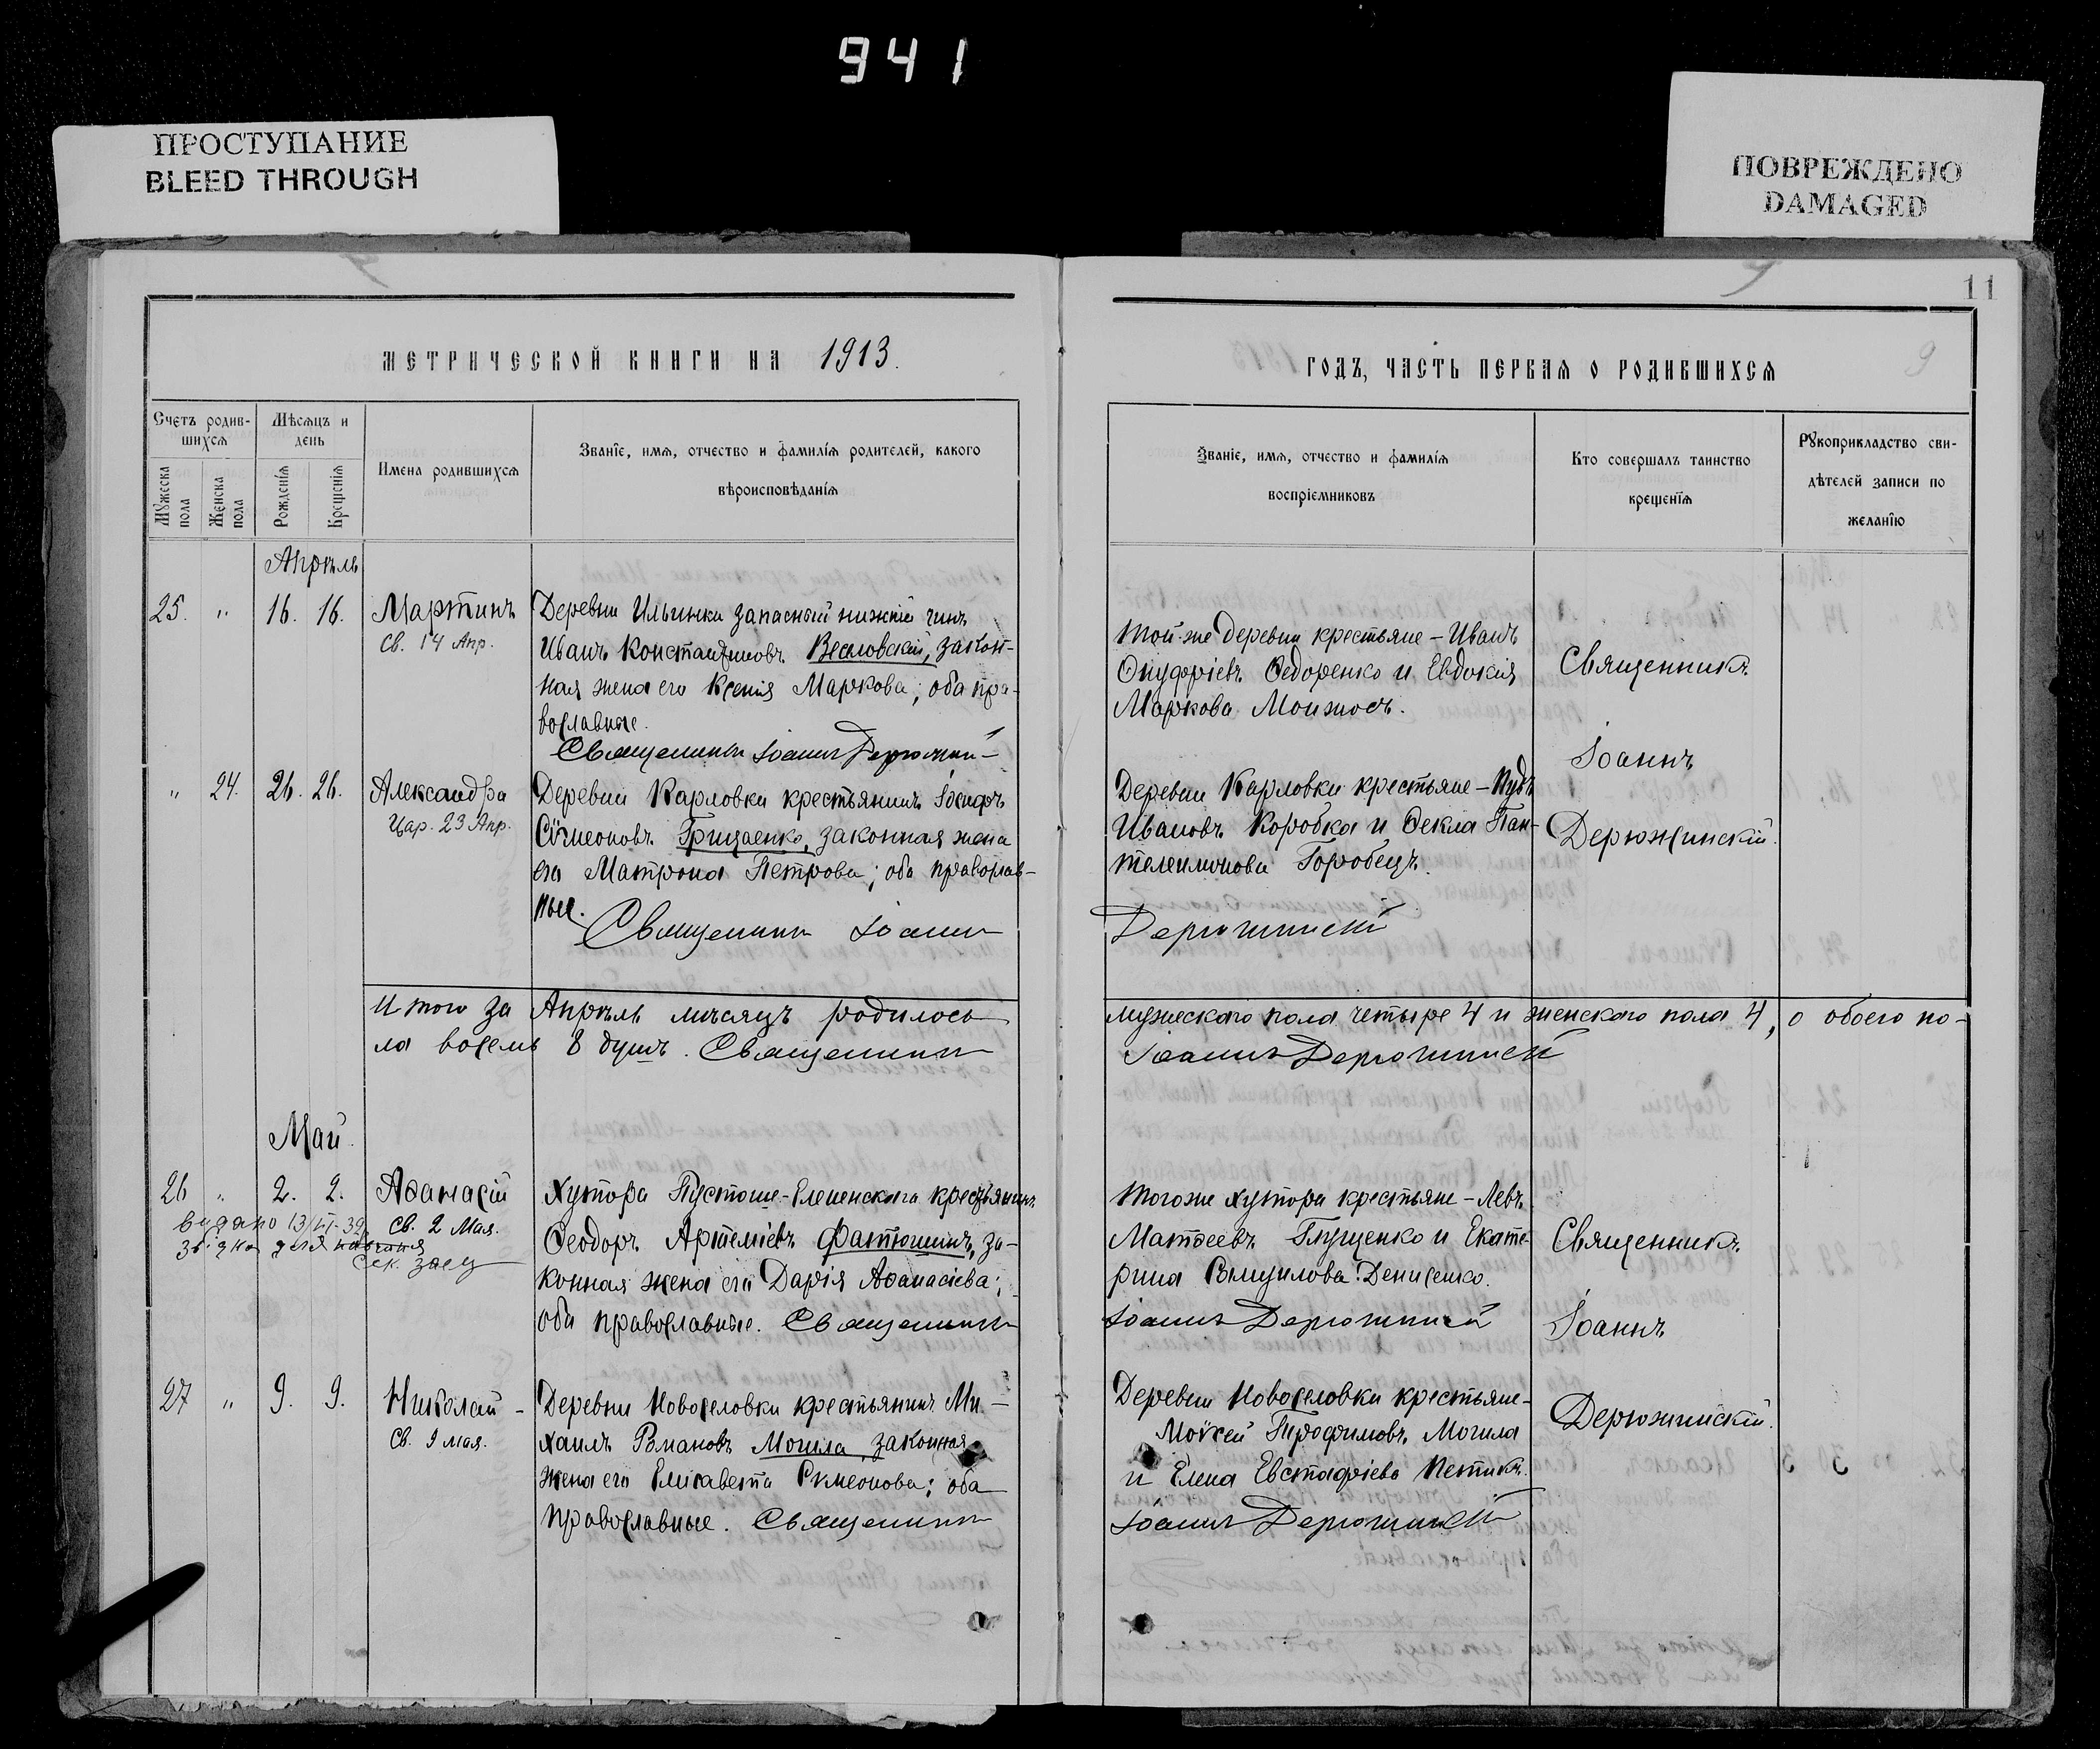 941
ПРОСТУПАНИЕ
BLEED THROUGH
ПОВРЕЖДЕНО
DAMAGED
11
МЕТРИЧЕСКОЙ КНИГИ НА 1913.
Счетъ родив-
шихся
Мѣсяцъ и
день
Мужеска
пола
Женска
пола
Рожденія
Крещенія
Имена родившихся
Званіе, имя, отчество и фамилія родителей, какого
вѣроисповѣданія
Апрѣль
25. " 16. 16. Мартинъ
Св. 14 Апр.
Деревни Ильинки запасный нижній чинъ
Иванъ Константиновъ Веселовскій, закон-
ная жена его Ксенія Маркова; оба пра-
вославные.
Священникъ Іоаннъ Дерюжинскій
" 24. 26. 26. Александра
Цар. 23 Апр.
Деревни Карловки крестьянинъ Іосифъ
Сѵмеоновъ Грицаенко, законная жена
его Матрона Петрова; оба православ-
ные.
Священникъ Іоаннъ
Итого за Апрѣль мѣсяцъ родилось
ла восемь 8 душъ. Священникъ
Май.
26 " 2. 2. Аѳанасій
Св. 2 Мая.
видано 13/VI-39
Сек. Заец
Хутора Пустоше-Еленскаго крестьянинъ
Ѳеодоръ Артеміевъ Фатюшинъ, за-
конная жена его Дарія Аѳанасіева;
оба православные. Священникъ
27 " 9. 9. Николай -
Св. 9 мая.
Деревни Новоселовки крестьянинъ Ми-
хаилъ Романовъ Могила, законная
жена его Елисавета Сѵмеонова; оба
православные. Священникъ
ГОДЪ, ЧАСТЬ ПЕРВАЯ О РОДИВШИХСЯ
9
Званіе, имя, отчество и фамилія
воспріемниковъ
Кто совершалъ таинство
крещенія
Рукоприкладство сви-
дѣтелей записи по
желанію
Той-же деревни крестьяне - Иванъ
Онуфріевъ Ѳедоренко и Евдокія
Маркова Монжосъ.
Священникъ
Іоаннъ
Дерюжинскій.
Деревни Карловки крестьяне - Иудъ
Ивановъ Коробка и Ѳекла Пан-
телеимонова Горобецъ.
Дерюжинскій
мужескаго пола четыре 4 и женскаго пола 4, о обоего по-
Іоаннъ Дерюжинскій
Тогоже хутора крестьяне - Левъ
Матѳеевъ Глущенко и Екате-
рина Денисенко.
Іоаннъ Дерюжинскій
Священникъ
Іоаннъ
Дерюжинскій.
Деревни Новоселовки крестьяне -
Моѵсей Трофимовъ Могила
и Елена Евстафіева Петикъ.
Іоаннъ Дерюжинскій